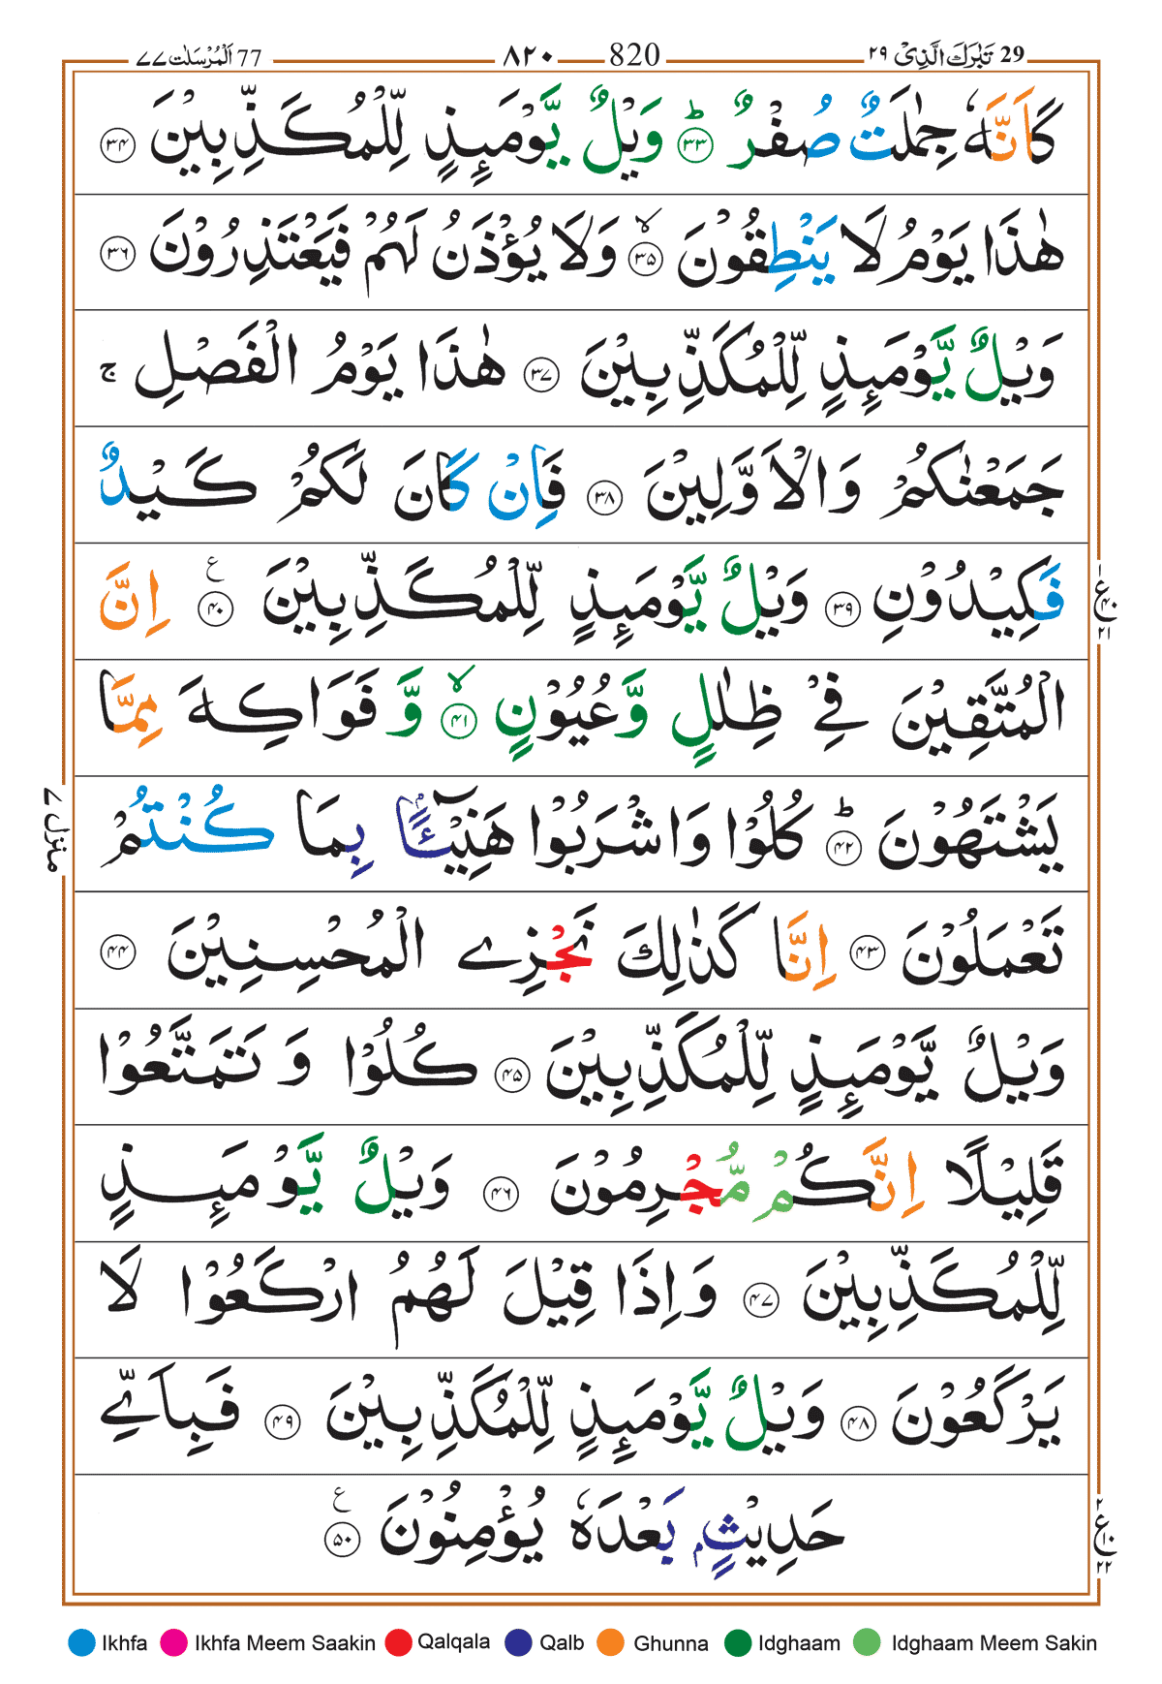 29 تَبٰرَكَ الَّذِیْ ۲۹ 820 ۸۲۰ 77 اَلْمُرْسَلٰت ۷۷
كَاَنَّهٗ جِمٰلَتٌ صُفْرٌ ؕ ۳۳ وَیْلٌ یَّوْمَىِٕذٍ لِّلْمُكَذِّبِیْنَ ۳۴
هٰذَا یَوْمُ لَا یَنْطِقُوْنَ ۙ ۳۵ وَلَا یُؤْذَنُ لَهُمْ فَیَعْتَذِرُوْنَ ۳۶
وَیْلٌ یَّوْمَىِٕذٍ لِّلْمُكَذِّبِیْنَ ۳۷ هٰذَا یَوْمُ الْفَصْلِ ۚ
جَمَعْنٰكُمْ وَالْاَوَّلِیْنَ ۳۸ فَاِنْ كَانَ لَكُمْ كَیْدٌ
فَكِیْدُوْنِ ۳۹ وَیْلٌ یَّوْمَىِٕذٍ لِّلْمُكَذِّبِیْنَ ۴۰ ع اِنَّ
۱ ع ۴۰ ۲۱
الْمُتَّقِیْنَ فِیْ ظِلٰلٍ وَّعُیُوْنٍ ۙ ۴۱ وَّ فَوَاكِهَ مِمَّا
یَشْتَهُوْنَ ؕ ۴۲ كُلُوْا وَاشْرَبُوْا هَنِیْٓـًٔۢا بِمَا كُنْتُمْ
منزل ۷
تَعْمَلُوْنَ ۴۳ اِنَّا كَذٰلِكَ نَجْزِی الْمُحْسِنِیْنَ ۴۴
وَیْلٌ یَّوْمَىِٕذٍ لِّلْمُكَذِّبِیْنَ ۴۵ كُلُوْا وَ تَمَتَّعُوْا
قَلِیْلًا اِنَّكُمْ مُّجْرِمُوْنَ ۴۶ وَیْلٌ یَّوْمَىِٕذٍ
لِّلْمُكَذِّبِیْنَ ۴۷ وَاِذَا قِیْلَ لَهُمُ ارْكَعُوْا لَا
یَرْكَعُوْنَ ۴۸ وَیْلٌ یَّوْمَىِٕذٍ لِّلْمُكَذِّبِیْنَ ۴۹ فَبِاَیِّ
حَدِیْثٍۭ بَعْدَهٗ یُؤْمِنُوْنَ ۵۰ ع
۲ ع ۱۰ ۲۲
Ikhfa Ikhfa Meem Saakin Qalqala Qalb Ghunna Idghaam Idghaam Meem Sakin